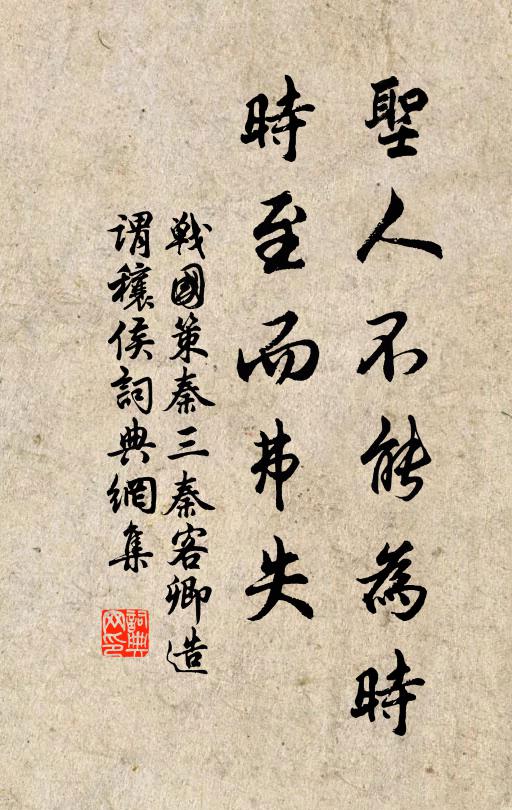 聖人不能為時
時至而弗失
戰國策秦三秦客卿造
謂穰侯詞典網集
詞典
网印